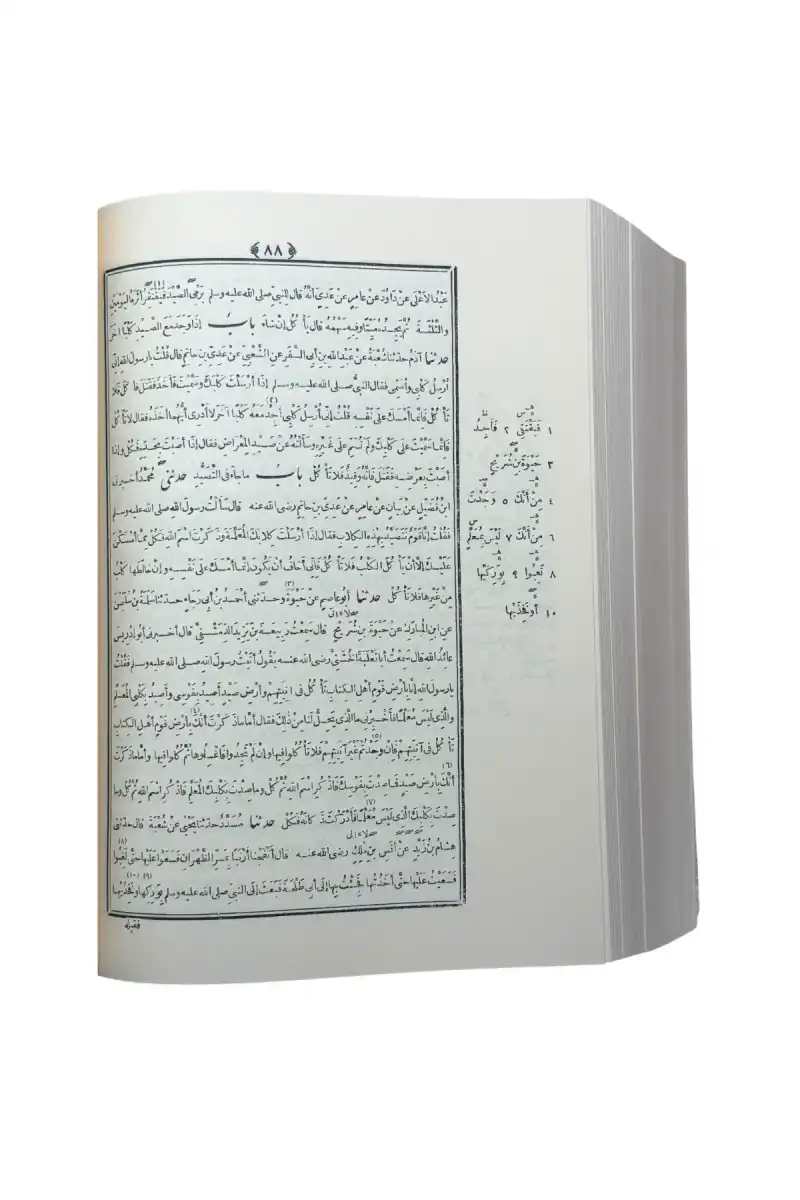 ٨٨
عبد الأعلى عن داود عن عامر عن عدي أنه قال للنبي صلى الله عليه وسلم يرمي الصيد فيقتفر أثره اليومين
والثلثة ثم يجده ميتا وفيه سهمه قال يأكل إن شاء باب إذا وجد مع الصيد كلبا آخر
حدثنا آدم حدثنا شعبة عن عبد الله بن أبي السفر عن الشعبي عن عدي بن حاتم قال قلت يا رسول الله إني
أرسل كلبي وأسمي فقال النبي صلى الله عليه وسلم إذا أرسلت كلبك وسميت فأخذ فقتل فأكل فلا
تأكل فإنما أمسك على نفسه قلت إني أرسل كلبي أجد معه كلبا آخر لا أدري أيهما أخذه فقال لا تأكل
فإنما سميت على كلبك ولم تسم على غيره وسألته عن صيد المعراض فقال إذا أصبت بحده فكل وإذا
أصبت بعرضه فقتل فإنه وقيذ فلا تأكل باب ما جاء في التصيد حدثني محمد أخبرني
ابن فضيل عن بيان عن عامر عن عدي بن حاتم رضى الله عنه قال سألت رسول الله صلى الله عليه وسلم
فقلت إنا قوم نتصيد بهذه الكلاب فقال إذا أرسلت كلابك المعلمة وذكرت اسم الله فكل مما أمسكن
عليك إلا أن يأكل الكلب فلا تأكل فإني أخاف أن يكون إنما أمسك على نفسه وإن خالطها كلب
من غيرها فلا تأكل حدثنا أبو عاصم عن حيوة وحدثني أحمد بن أبي رجاء حدثنا سلمة بن سليمن
عن ابن المبارك عن حيوة بن شريح قال سمعت ربيعة بن يزيد الدمشقي قال أخبرني أبو إدريس
عائذ الله قال سمعت أبا ثعلبة الخشني رضى الله عنه يقول أتيت رسول الله صلى الله عليه وسلم فقلت
يا رسول الله إنا بأرض قوم أهل الكتاب نأكل في آنيتهم وأرض صيد أصيد بقوسي وأصيد بكلبي المعلم
والذي ليس معلما فأخبرني ما الذي يحل لنا من ذلك فقال أما ما ذكرت أنك بأرض قوم أهل الكتاب
تأكل في آنيتهم فإن وجدتم غير آنيتهم فلا تأكلوا فيها وإن لم تجدوا فاغسلوها ثم كلوا فيها وأما ما ذكرت
أنك بأرض صيد فما صدت بقوسك فاذكر اسم الله ثم كل وما صدت بكلبك المعلم فاذكر اسم الله ثم كل وما
صدت بكلبك الذي ليس معلما فأدركت ذكاته فكل حدثنا مسدد حدثنا يحيى عن شعبة قال حدثني
هشام بن زيد عن أنس بن ملك رضى الله عنه قال أنفجنا أرنبا بمر الظهران فسعوا عليها حتى لغبوا
فسعيت عليها حتى أخذتها فجئت بها إلى أبي طلحة فبعث إلى النبي صلى الله عليه وسلم بوركها وفخذيها
فقبله
١ فيقتفي ٢ فأجد
٣ حيوة بن شريح
٤ من أنك ٥ وجدت
٦ من أنك ٧ ليس بمعلم
٨ تعبوا ٩ بوركيها
١٠ أو فخذيها